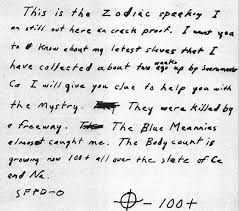 This is the Zodiac speaking I
am still out here an crack proof. I want you
to Know about my latest slaves that I
have collected about two weeks ago up by Sacramento
Ca I will give you clue to help you with
the Mystry. They were killed by
a freeway. The Blue Meannies
almost caught me. The Body count is
growing now 100+ all over the state of Ca
and Na.
SFPD-0
- 100+